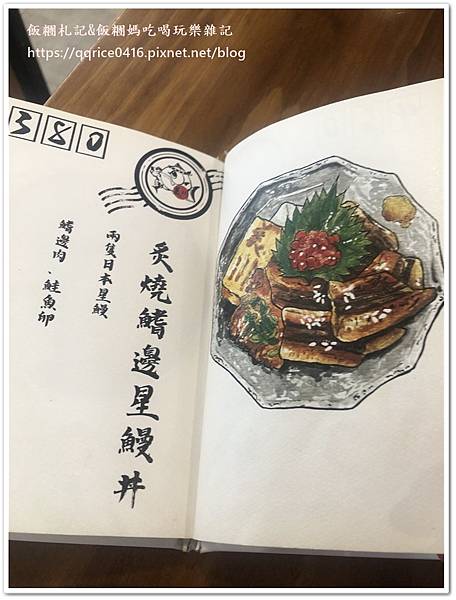 飯糰札記&飯糰媽吃喝玩樂雜記
https://qqrice0416.pixnet.net/blog
380
炙燒鰭邊星鰻丼
兩隻日本星鰻
鰭邊肉、鮭魚卵